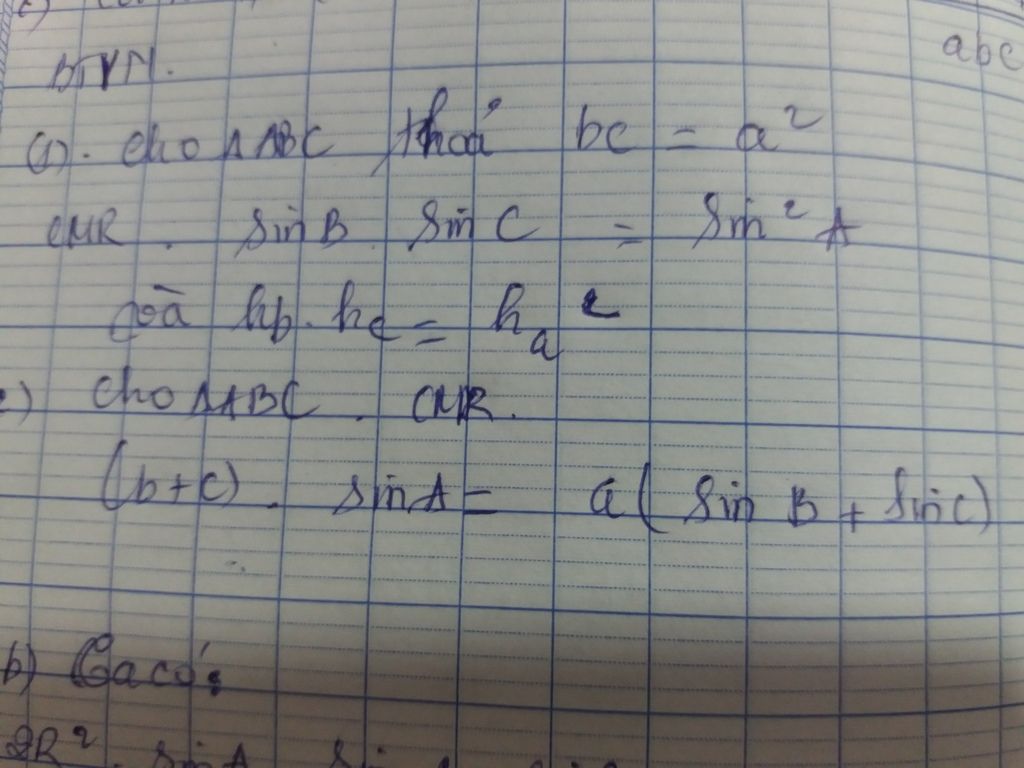 abc
BTVN.
(1). Cho ΔABC thoả bc = a²
CMR. sin B. sin C = sin² A
và hb. hc = ha²
2) Cho ΔABC. CMR.
(b+c). sin A = a( sin B + sin C)
b) Ta có:
2R². sin A. sin